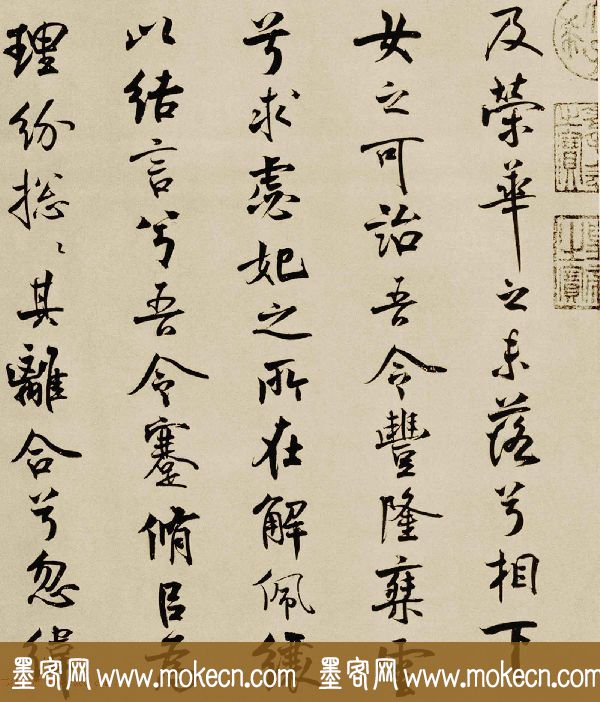 及榮華之未落兮相下
女之可詒吾令豐隆椉雲
兮求虙妃之所在解佩纕
以結言兮吾令蹇脩以為
理紛揔〻其離合兮忽緯
墨客网 www.mokecn.com 墨客网 www.mokecn.com